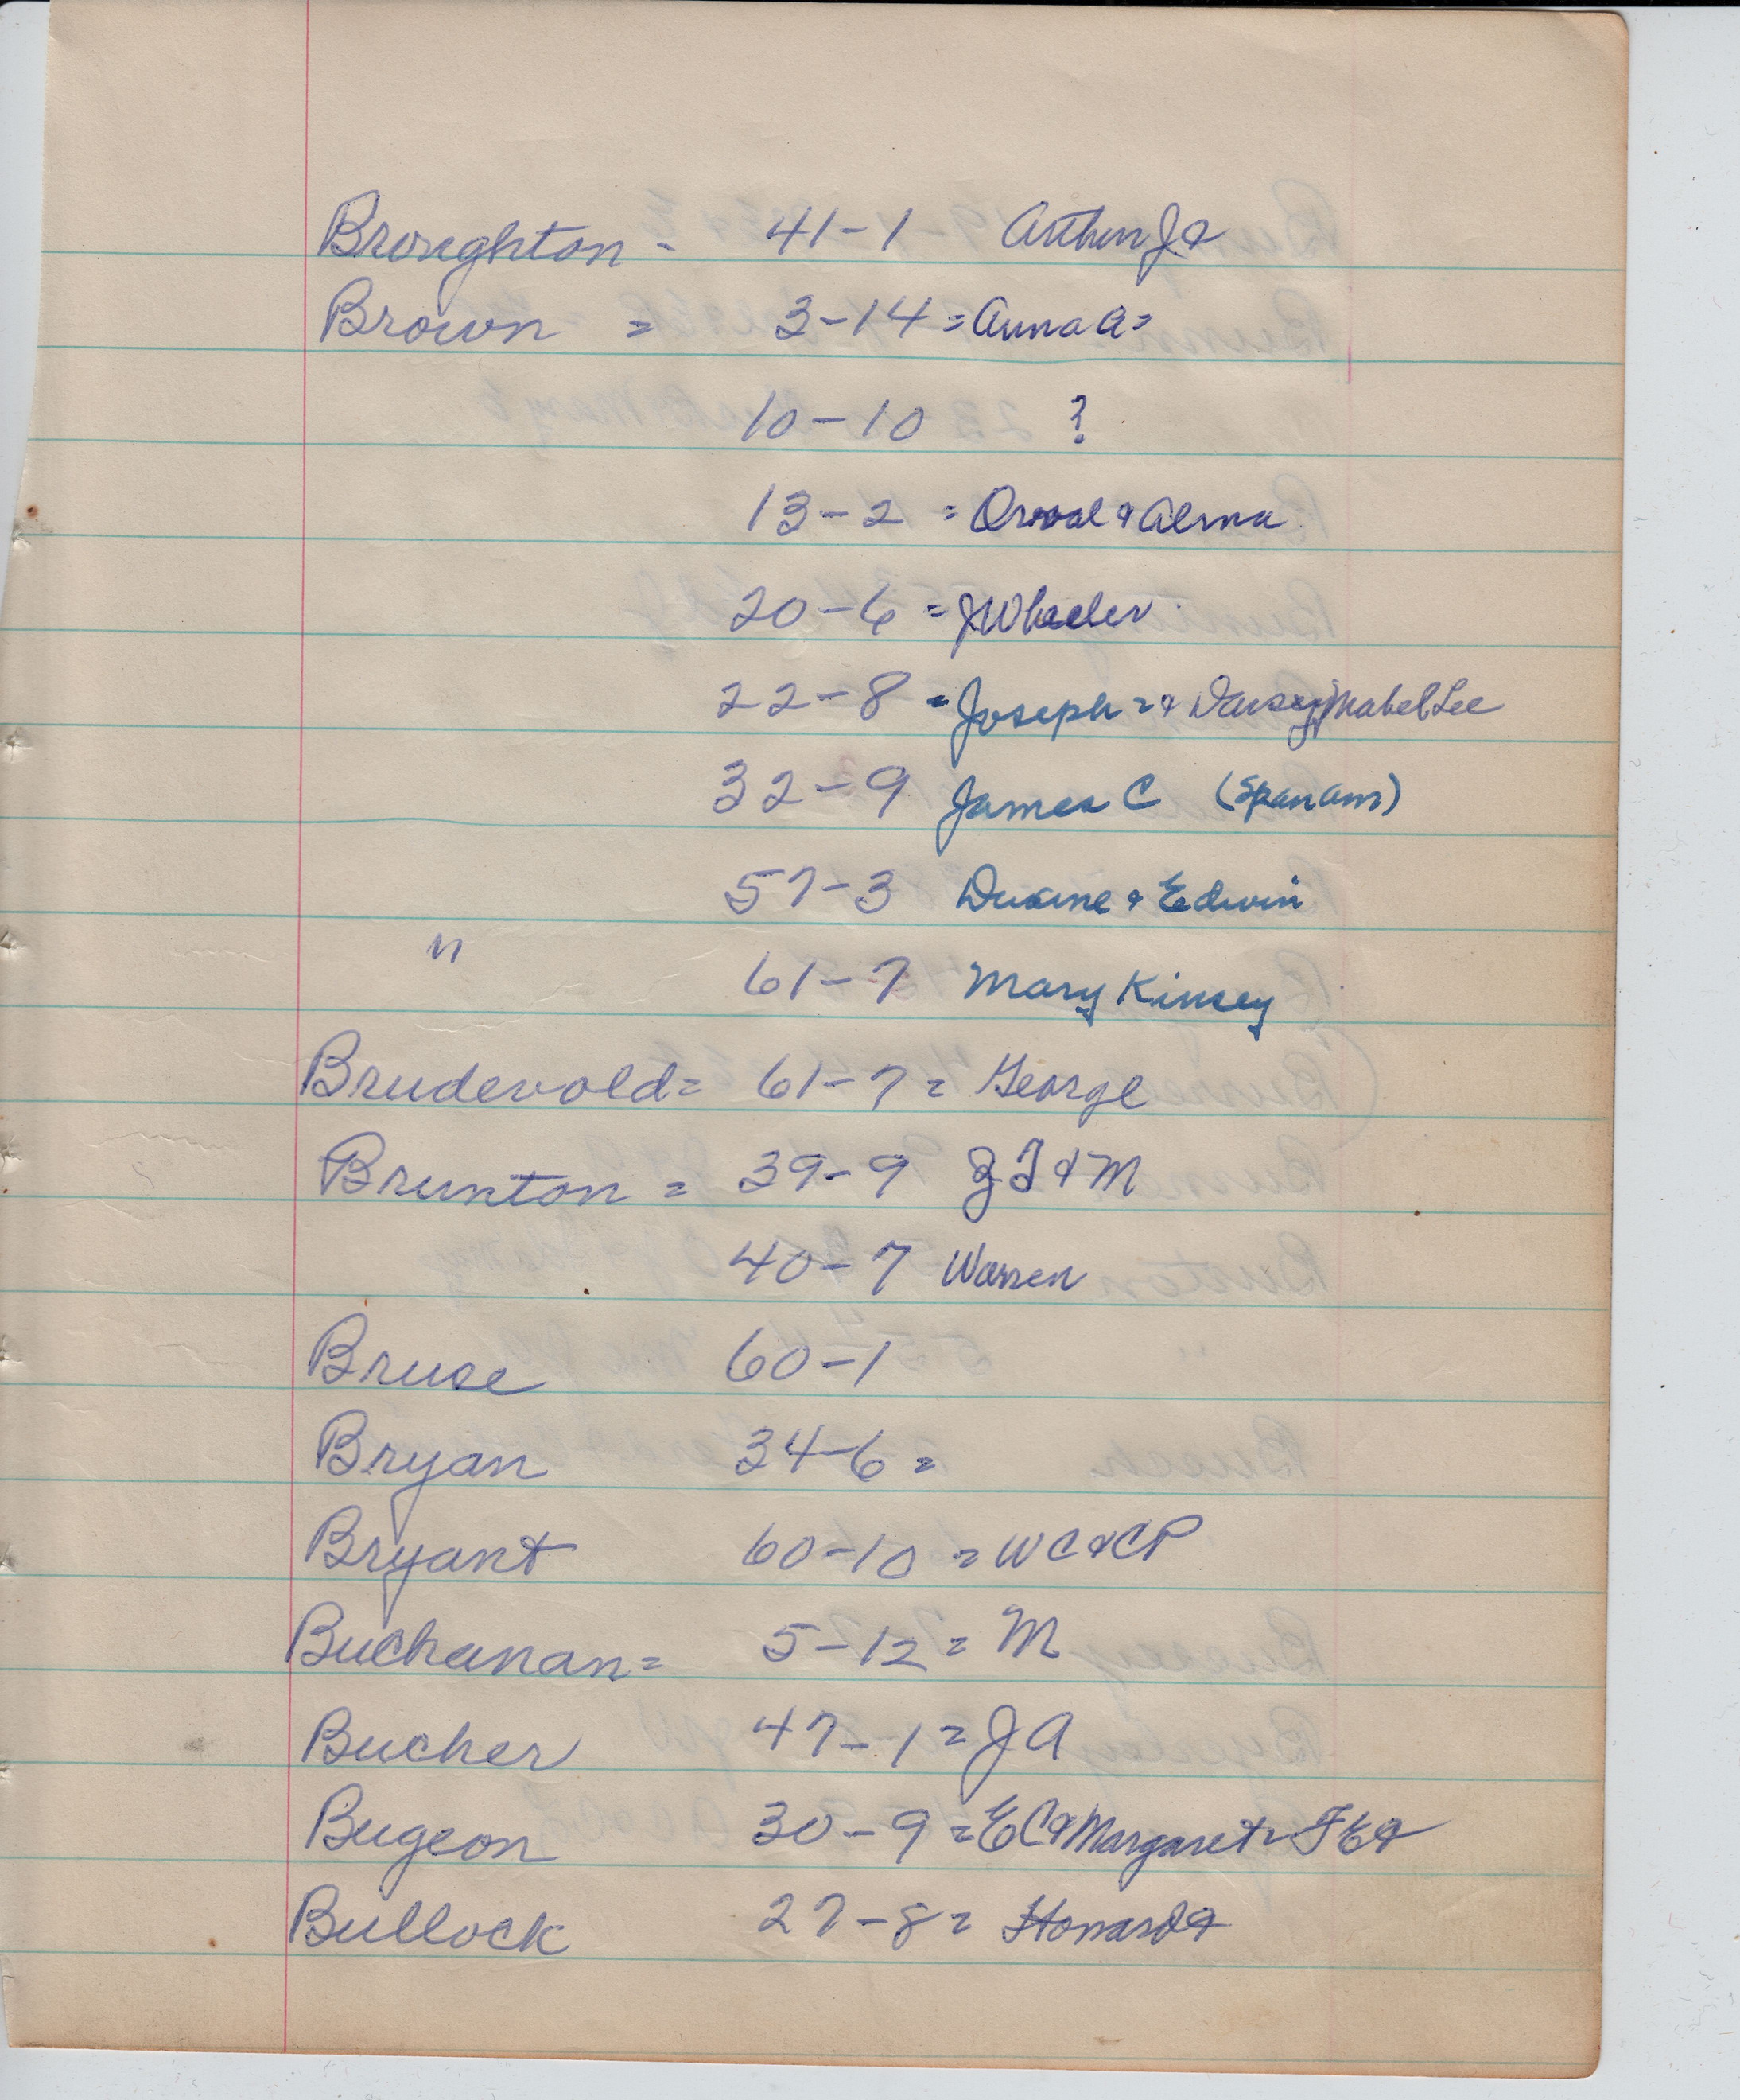 Broughton - 41-1 Arthur J &
Brown = 3-14 = Anna A =
10-10 ?
13-2 = Orval & Alma
20-6 = J Wheeler
22-8 = Joseph = & Daisy Mabel Lee
32-9 James C (Span am)
57-3 Duane & Edwin
" 61-7 Mary Kinsey
Brudevold = 61-7 = George
Brunton = 39-9 & M
40-7 Warren
Bruse 60-1
Bryan 34-6 =
Bryant 60-10 = WC & CP
Buchanan = 5-12 = M
Bucher 47-1 = J A
Bugeon 30-9 = EC & Margaret & F E &
Bullock 27-8 = Howard &